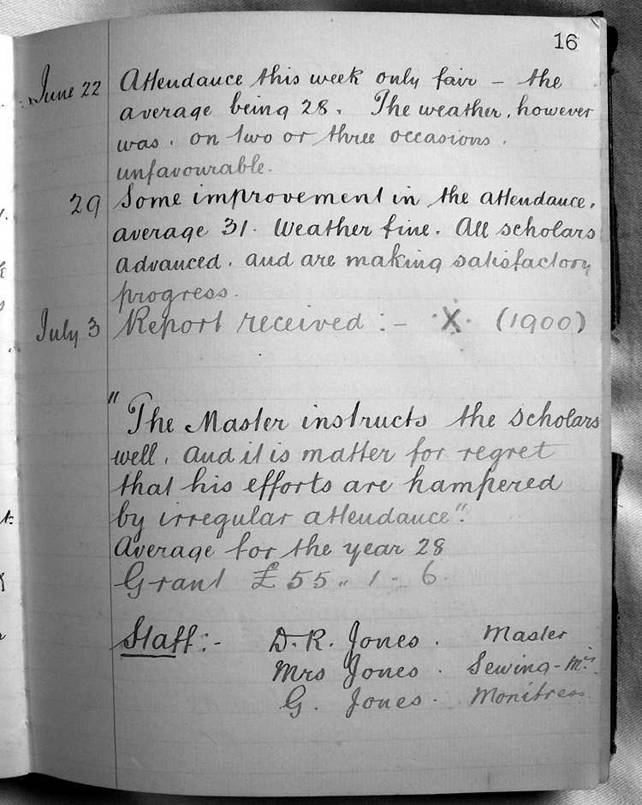 16
June 22 Attendance this week only fair – the
average being 28. The weather, however
was, on two or three occasions,
unfavourable.
29 Some improvement in the attendance,
average 31. Weather fine. All scholars
advanced, and are making satisfactory
progress.
July 3 Report received :- X (1900)
"The Master instructs the scholars
well, and it is matter for regret
that his efforts are hampered
by irregular attendance".
Average for the year 28
Grant £55 " 1 - 6.
Staff:- D.R. Jones. Master
Mrs Jones. Sewing-Ms.
G. Jones. Monitress